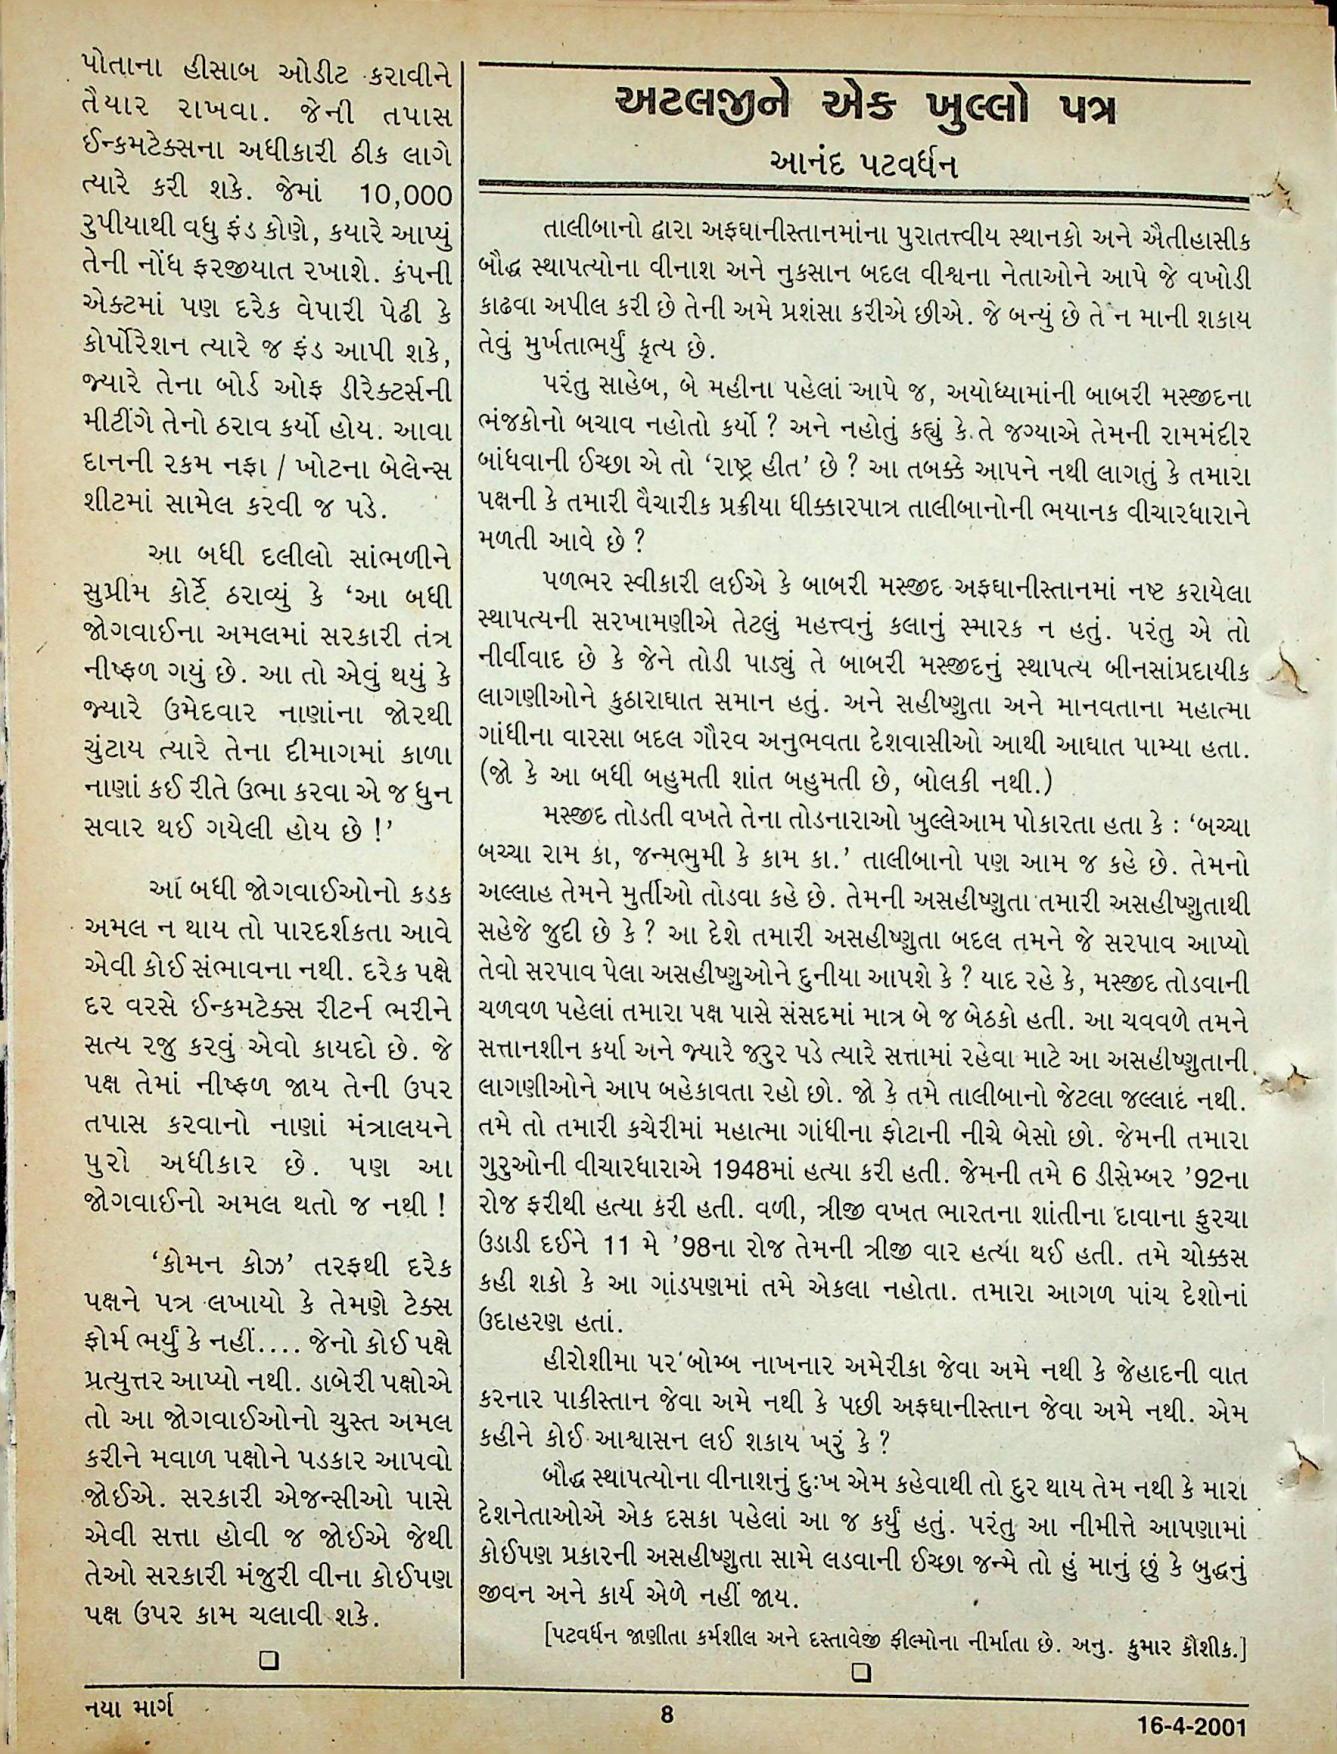 પોતાના હીસાબ ઓડીટ કરાવીને
તૈયાર રાખવા. જેની તપાસ
ઈન્કમટેક્સના અધીકારી ઠીક લાગે
ત્યારે કરી શકે. જેમાં 10,000
રુપીયાથી વધુ ફંડ કોણે, કયારે આપ્યું
તેની નોંધ ફરજીયાત રખાશે. કંપની
એક્ટમાં પણ દરેક વેપારી પેઢી કે
કોર્પોરેશન ત્યારે જ ફંડ આપી શકે,
જ્યારે તેના બોર્ડ ઓફ ડીરેક્ટર્સની
મીટીંગે તેનો ઠરાવ કર્યો હોય. આવા
દાનની રકમ નફા / ખોટના બેલેન્સ
શીટમાં સામેલ કરવી જ પડે.
આ બધી દલીલો સાંભળીને
સુપ્રીમ કોર્ટે ઠરાવ્યું કે ‘આ બધી
જોગવાઈના અમલમાં સરકારી તંત્ર
નીષ્ફળ ગયું છે. આ તો એવું થયું કે
જ્યારે ઉમેદવાર નાણાંના જોરથી
ચુંટાય ત્યારે તેના દીમાગમાં કાળા
નાણાં કઈ રીતે ઉભા કરવા એ જ ધુન
સવાર થઈ ગયેલી હોય છે !’
આ બધી જોગવાઈઓનો કડક
અમલ ન થાય તો પારદર્શકતા આવે
એવી કોઈ સંભાવના નથી. દરેક પક્ષે
દર વરસે ઈન્કમટેક્સ રીટર્ન ભરીને
સત્ય રજુ કરવું એવો કાયદો છે. જે
પક્ષ તેમાં નીષ્ફળ જાય તેની ઉપર
તપાસ કરવાનો નાણાં મંત્રાલયને
પુરો અધીકાર છે. પણ આ
જોગવાઈનો અમલ થતો જ નથી !
‘કોમન કોઝ’ તરફથી દરેક
પક્ષને પત્ર લખાયો કે તેમણે ટેક્સ
ફોર્મ ભર્યું કે નહીં.... જેનો કોઈ પક્ષે
પ્રત્યુત્તર આપ્યો નથી. ડાબેરી પક્ષોએ
તો આ જોગવાઈઓનો ચુસ્ત અમલ
કરીને મવાળ પક્ષોને પડકાર આપવો
જોઈએ. સરકારી એજન્સીઓ પાસે
એવી સત્તા હોવી જ જોઈએ જેથી
તેઓ સરકારી મંજુરી વીના કોઈપણ
પક્ષ ઉપર કામ ચલાવી શકે.
અટલજીને એક ખુલ્લો પત્ર
આનંદ પટવર્ધન
તાલીબાનો દ્વારા અફઘાનીસ્તાનમાંના પુરાતત્ત્વીય સ્થાનકો અને ઐતીહાસીક
બૌદ્ધ સ્થાપત્યોના વીનાશ અને નુકસાન બદલ વીશ્વના નેતાઓને આપે જે વખોડી
કાઢવા અપીલ કરી છે તેની અમે પ્રશંસા કરીએ છીએ. જે બન્યું છે તે ન માની શકાય
તેવું મુર્ખતાભર્યું કૃત્ય છે.
પરંતુ સાહેબ, બે મહીના પહેલાં આપે જ, અયોધ્યામાંની બાબરી મસ્જીદના
ભંજકોનો બચાવ નહોતો કર્યો ? અને નહોતું કહ્યું કે તે જગ્યાએ તેમની રામમંદીર
બાંધવાની ઈચ્છા એ તો ‘રાષ્ટ્ર હીત’ છે ? આ તબક્કે આપને નથી લાગતું કે તમારા
પક્ષની કે તમારી વૈચારીક પ્રક્રીયા ધીક્કારપાત્ર તાલીબાનોની ભયાનક વીચારધારાને
મળતી આવે છે ?
પળભર સ્વીકારી લઈએ કે બાબરી મસ્જીદ અફઘાનીસ્તાનમાં નષ્ટ કરાયેલા
સ્થાપત્યની સરખામણીએ તેટલું મહત્ત્વનું કલાનું સ્મારક ન હતું. પરંતુ એ તો
નીર્વીવાદ છે કે જેને તોડી પાડ્યું તે બાબરી મસ્જીદનું સ્થાપત્ય બીનસાંપ્રદાયીક
લાગણીઓને કુઠારાઘાત સમાન હતું. અને સહીષ્ણુતા અને માનવતાના મહાત્મા
ગાંધીના વારસા બદલ ગૌરવ અનુભવતા દેશવાસીઓ આથી આઘાત પામ્યા હતા.
(જો કે આ બધી બહુમતી શાંત બહુમતી છે, બોલકી નથી.)
મસ્જીદ તોડતી વખતે તેના તોડનારાઓ ખુલ્લેઆમ પોકારતા હતા કે : ‘બચ્ચા
બચ્ચા રામ કા, જન્મભુમી કે કામ કા.’ તાલીબાનો પણ આમ જ કહે છે. તેમનો
અલ્લાહ તેમને મુર્તીઓ તોડવા કહે છે. તેમની અસહીષ્ણુતા તમારી અસહીષ્ણુતાથી
સહેજે જુદી છે કે ? આ દેશે તમારી અસહીષ્ણુતા બદલ તમને જે સરપાવ આપ્યો
તેવો સરપાવ પેલા અસહીષ્ણુઓને દુનીયા આપશે કે ? યાદ રહે કે, મસ્જીદ તોડવાની
ચળવળ પહેલાં તમારા પક્ષ પાસે સંસદમાં માત્ર બે જ બેઠકો હતી. આ ચવવળે તમને
સત્તાનશીન કર્યા અને જ્યારે જરુર પડે ત્યારે સત્તામાં રહેવા માટે આ અસહીષ્ણુતાની
લાગણીઓને આપ બહેકાવતા રહો છો. જો કે તમે તાલીબાનો જેટલા જલ્લાદ નથી.
તમે તો તમારી કચેરીમાં મહાત્મા ગાંધીના ફોટાની નીચે બેસો છો. જેમની તમારા
ગુરુઓની વીચારધારાએ 1948માં હત્યા કરી હતી. જેમની તમે 6 ડીસેમ્બર ’92ના
રોજ ફરીથી હત્યા કરી હતી. વળી, ત્રીજી વખત ભારતના શાંતીના દાવાના ફુરચા
ઉડાડી દઈને 11 મે ’98ના રોજ તેમની ત્રીજી વાર હત્યા થઈ હતી. તમે ચોક્કસ
કહી શકો કે આ ગાંડપણમાં તમે એકલા નહોતા. તમારા આગળ પાંચ દેશોનાં
ઉદાહરણ હતાં.
હીરોશીમા પર બોમ્બ નાખનાર અમેરીકા જેવા અમે નથી કે જેહાદની વાત
કરનાર પાકીસ્તાન જેવા અમે નથી કે પછી અફઘાનીસ્તાન જેવા અમે નથી. એમ
કહીને કોઈ આશ્વાસન લઈ શકાય ખરું કે ?
બૌદ્ધ સ્થાપત્યોના વીનાશનું દુઃખ એમ કહેવાથી તો દુર થાય તેમ નથી કે મારા
દેશનેતાઓએ એક દસકા પહેલાં આ જ કર્યું હતું. પરંતુ આ નીમીત્તે આપણામાં
કોઈપણ પ્રકારની અસહીષ્ણુતા સામે લડવાની ઈચ્છા જન્મે તો હું માનું છું કે બુદ્ધનું
જીવન અને કાર્ય એળે નહીં જાય.
[પટવર્ધન જાણીતા કર્મશીલ અને દસ્તાવેજી ફીલ્મોના નીર્માતા છે. અનુ. કુમાર કૌશીક.]
નયા માર્ગ
8
16-4-2001